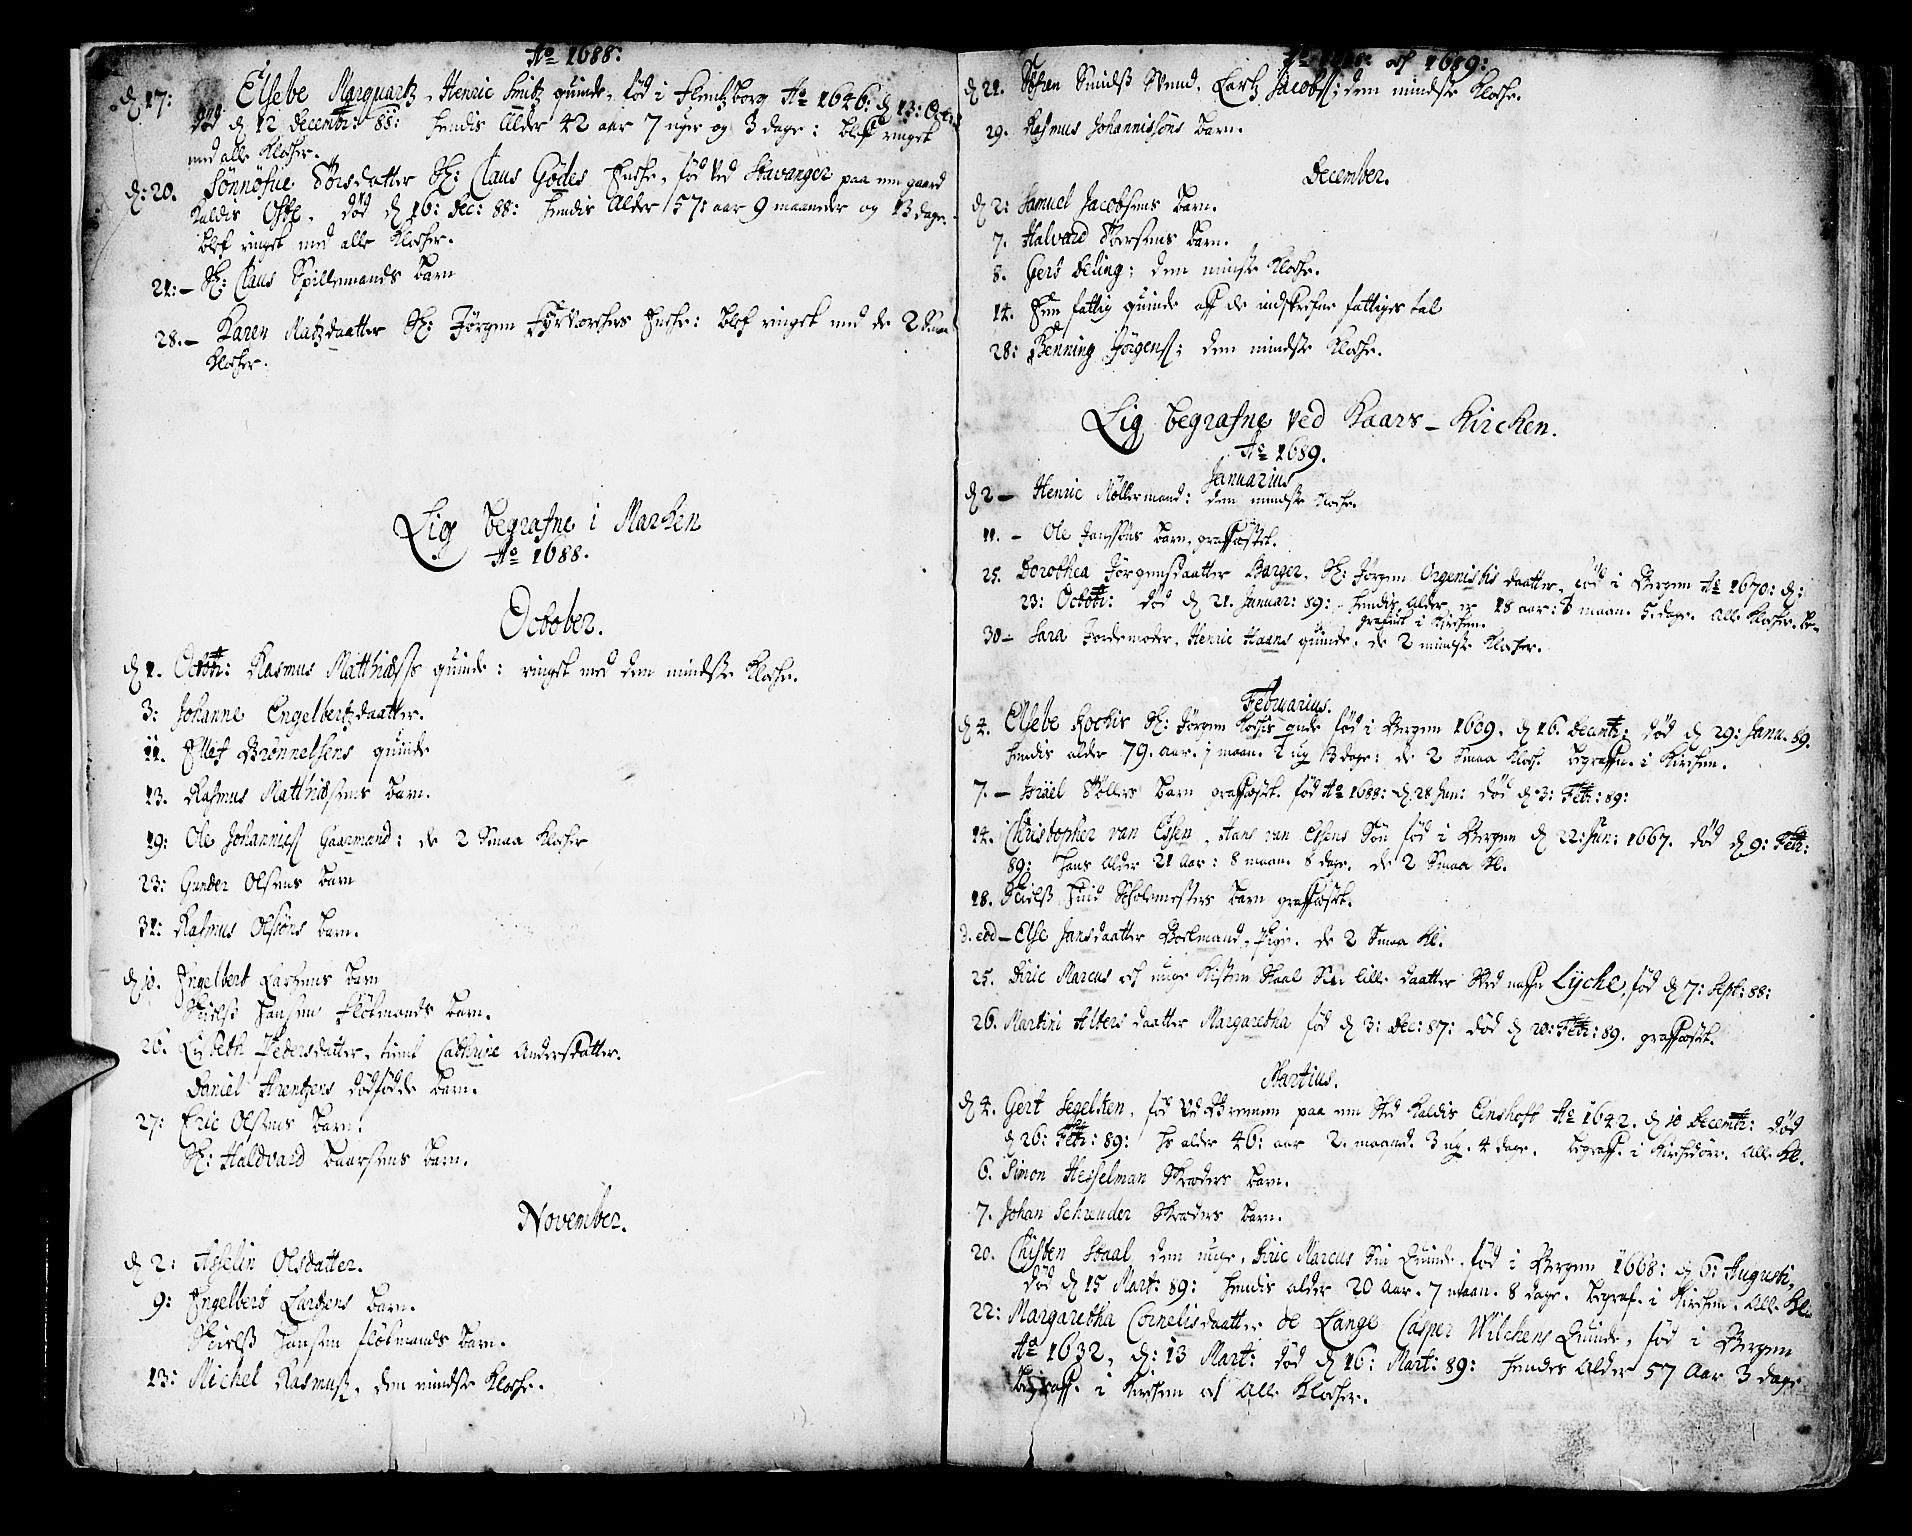 Ao 1688:
d 17: Elsebe Marquartz, Henric Smitz quinde, fød i Flensborg Ao 1646: d 13: Oct:
død d 12 Decemb: 88: hendis Alder 42 aar 7 uger og 3 dage: blef ringet
med alle Klocher.
d: 20. Sønnøfue Torsdatter Sl: Claus Gødes Encke, fød ved Stavanger paa en gaard
Kaldis død d 16: Dec: 88: hendis Alder 57: aar 9 maaneder og 13 dage.
blef ringet med alle Klocher.
21:- Sl: Claus Spillemands barn
28.- Karen Matzdaatter Sl: Jørgen Encke: blef ringet med de 2 smaa
Klocher.
Lig begrafne i Marken
Ao 1688.
October.
d 1. Octob: Rasmus Matthiæss quinde: ringet med den mindste Kloche.
3: Johanne Engelbertzdaatter.
11. Ellef Brønnelsens quinde
13. Rasmus Matthiæsens barn.
19: Ole Johanness Gaarmand: de 2 Smaa Klocher
23: Gunder Olsens barn
31: Rasmus Olsøns barn.
d 10. Engelbert Larsens barn
Nielss Hansen Fløtmands barn.
26. Lisbeth Pedersdatter, item Cathrine Andersdatter.
Daniel Arentzens dødfødde barn.
27: Eric Olsens barn.
Sl: Haldvard Baarsens barn.
November.
d 2: Asselin Olsdatter.
9: Engelbert Lartzens barn.
Nielss Hansen fløtmands barn.
13: Michel Rasmuss, den mindste Kloche.
Ao 1688: och 1689:
d 21. Lartz Jacobss: den mindste Kloche.
29. Rasmus Johannissøns barn.
December.
d 2: Samuel Jacobsens barn.
7. Halvard Torsens barn.
8. Gert Deling: den minste Kloche.
14. Een fattig quinde aff de indskrefne fattiges tal
28: Henning Jørgenss: den mindste Kloche.
Lig begrafne ved Kaars-Kircken.
Ao 1689.
Januarius
d 2 - Henric Møllermand: den mindste Kloche.
11. - Ole Janssøns barn, graffæstet.
25. Dorothea Jørgensdaatter Barger, Sl: Jørgen Orgenistis daatter, fød i Bergen Ao 1670: d:
23: Octob: død d 21. Januar: 89: hendis Alder er 18 aar: maan. 5 dage. alle Klocher. be-
grafuet i Kirchen.
30- Sara Jordemoder, Henric Haans quinde. de 2 mindste Klocher.
Februarius.
d 4. Elsebe Kochis Sl: Jørgen Kochis encke fød i Bergen 1609. d 16. Decemb: død d 29: Janu. 89.
hendis alder 79. aar. 1 maan. 1 ug 3 dage: de 2 Smaa Kloch. begraffn. i Kirchen.
7. - Israel Møllers barn graffæstet. fød Ao 1688: d. 28 Jun: død d 3: Feb: 89:
14. Christopher van Essen, Hans van Essens Søn fød i Bergen d 22: Jun: 1667. død d 9: Feb:
89: Hans Alder 21 Aar: 8 maan. 8 dage. de 2 Smaa Kl.
18. Nielss Huid Scholemesters barn graffæstet.
d. eod - Else Jansdaatter Boelmand, Pige. de 2 Smaa Kl.
25. Diric Marcus och unge Kisten Staal Sin lille daatter Ved naffn Lyche, fød d 7: Sept: 88:
26. Martini Alters daatter Margaretha fød d 3: Dec: 87: død d 20: Feb: 89. graffæstet.
Martius.
d 4. Gert Segelken, fød ved Bremen paa en Sted Kaldis Einshoff Ao 1642. d 10 Decemb: død
d 26: Feb: 89: hs alder 46: aar 2. maand. 3 ug. 4 dage. begraff. i Kirchedørr. Alle Kl.
6. Simon Hesselman Skræders barn.
7. Johan Schreuder Skræders barn.
20. Chisten Staal den unge, Diric Marcus Sin Quinde. fød i Bergen 1668: d 6: Augusti,
død d 15 Mart: 89: hendis alder 20 Aar. 7 maan. 8 dage. begraf. i Kirchen. Alle Kl:
22: Margaretha Cornelisdaatter de Lange Casper Wilchens Quinde, fød i Bergen
Ao 1632, d: 13 Mart: død d 16: Mart: 89: hendes Alder 57 Aar 3 dage
begraff. i Kirchen och Alle Klocher.